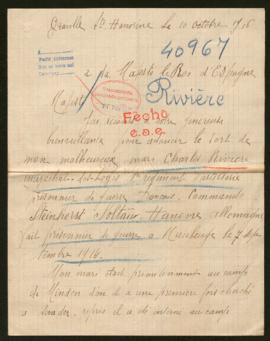 Graville Ste Honorine le 10 octobre 1916
40967
à Sa Majesté le Roi d'Espagne
Rivière
Majesté
Fecho
votre généreuse
bienveillance pour adoucir le sort de
mon malheureux mari Charles Rivière
maréchal-des-logis régiment
prisonnier de guerre français. Commando
Steinhorst Soltau Hanovre Allemagne
fait prisonnier de guerre à Maubeuge le 7 Sep-
tembre 1914.
Mon mari était premièrement au camp
de Minden d'où il a une première fois cherché
à s'évader, après il a été interné au camp